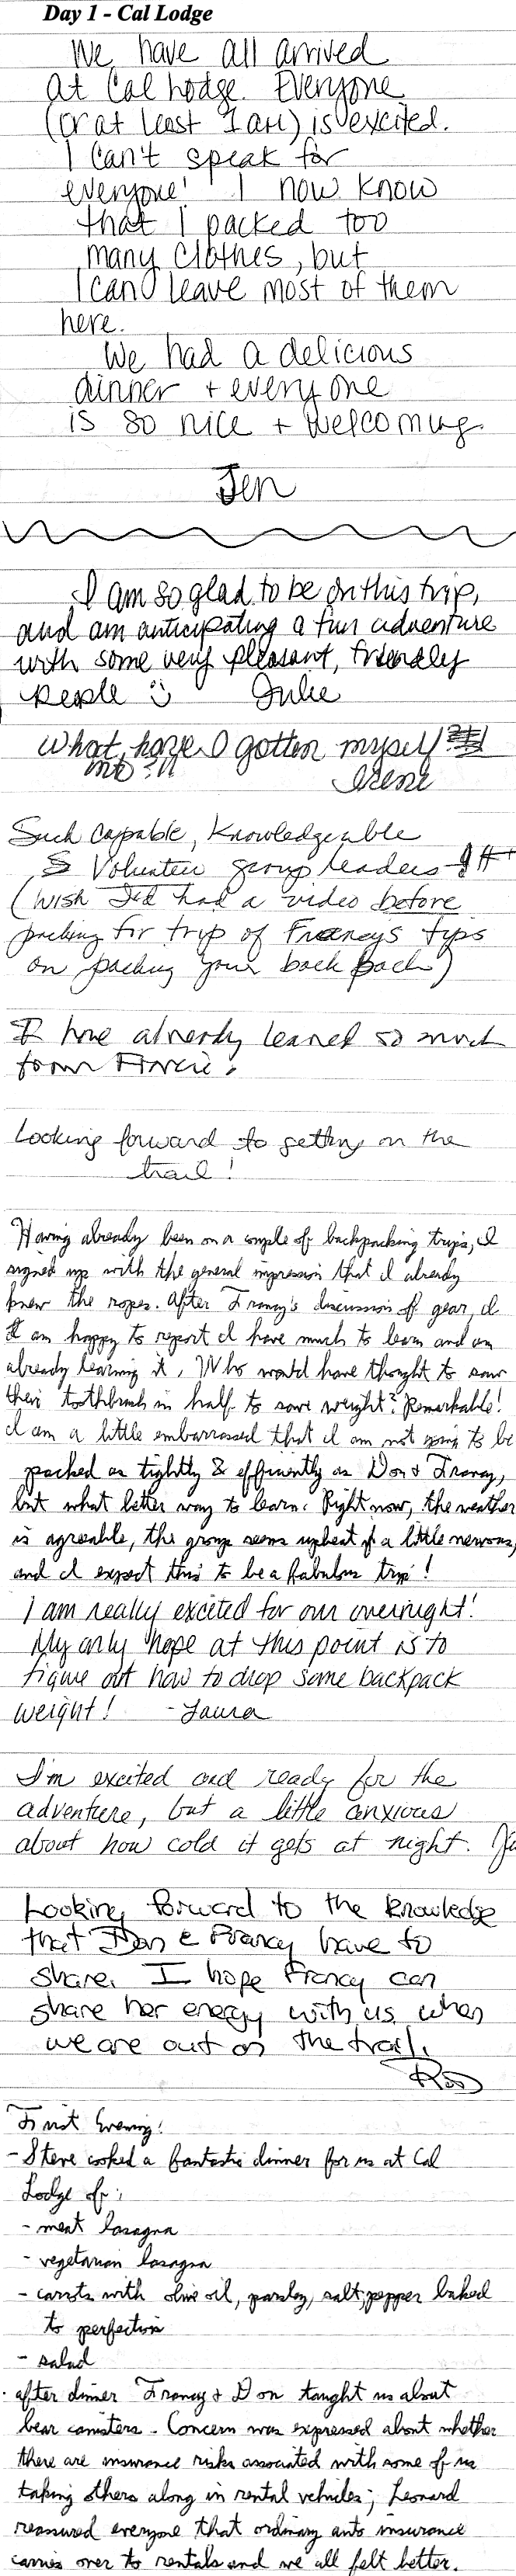 Day 1 - Cal Lodge
We have all arrived
at Cal Lodge. Everyone
(or at least I am) is excited.
I can't speak for
everyone! I now know
that I packed too
many clothes, but
I can leave most of them
here.
We had a delicious
dinner + everyone
is so nice + welcoming.
Jen
I am so glad to be on this trip,
and am anticipating a fun adventure
with some very pleasant, friendly
people Julie
What have I gotten myself
into?!! Irene
Such capable, Knowledgeable
& Volunteer group leaders
(wish I'd had a video before
packing for trip of Francy's tips
on packing your back pack)
I have already learned so much
Looking forward to getting on the
trail!
Having already been on a couple of backpacking trips, I
signed up with the general impression that I already
knew the ropes. After Francy's discussion of gear, I
I am happy to report I have much to learn and am
already learning it. Who would have thought to saw
their toothbrush in half to save weight? Remarkable!
I am a little embarrassed that I am not going to be
packed as tightly & efficiently as Don & Francy,
but what better way to learn. Right now, the weather
is agreeable, the group seems upbeat if a little nervous,
and I expect this to be a fabulous trip!
I am really excited for our overnight!
My only hope at this point is to
figure out how to drop some backpack
weight! - Laura
I'm excited and ready for the
adventure, but a little anxious
about how cold it gets at night.
Looking forward to the knowledge
that Don & Francy have to
share. I hope Francy can
share her energy with us when
we are out on the trail.
First Evening!
- Steve cooked a fantastic dinner for us at Cal
Lodge of:
- meat lasagna
- vegetarian lasagna
- carrots with olive oil, parsley, salt, pepper baked
to perfection
- salad
- after dinner Francy & Don taught us about
bear canisters. Concern was expressed about whether
there are insurance risks associated with some of us
taking others along in rental vehicles; Leonard
reassured everyone that ordinary auto insurance
carries over to rentals and we all felt better.